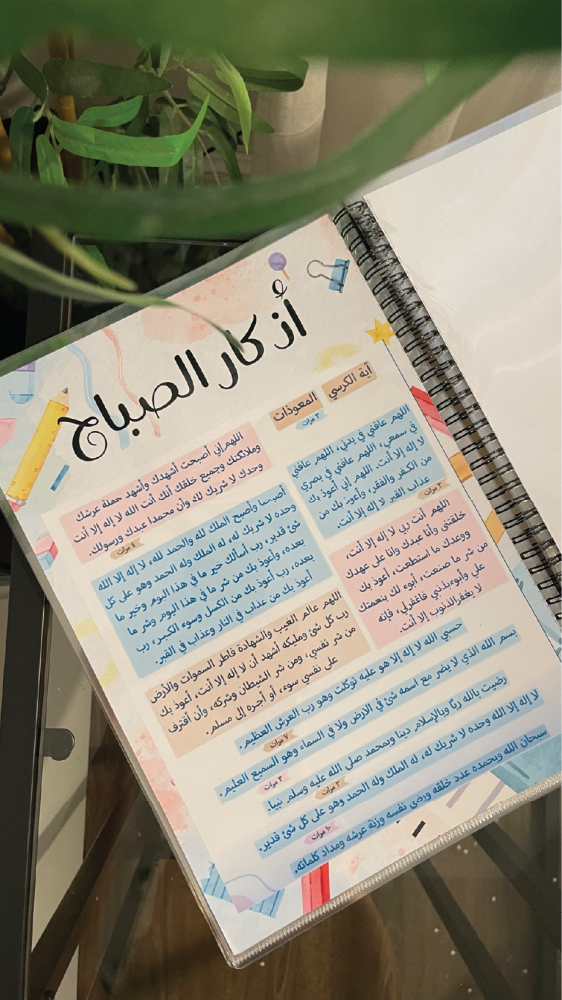 أذكار الصباح
آية الكرسي
المعوذات
٣ مرات
اللهم عافني في بدني، اللهم عافني
في سمعي، اللهم عافني في بصري
لا إله إلا أنت. اللهم إني أعوذ بك
من الكفر والفقر، وأعوذ بك من
عذاب القبر لا إله إلا أنت.
٣ مرات
اللهم أنت ربي لا إله إلا أنت،
خلقتني وأنا عبدك وأنا على عهدك
ووعدك ما استطعت، أعوذ بك
من شر ما صنعت، أبوء لك بنعمتك
علي وأبوء بذنبي فاغفرلي، فإنه
لا يغفر الذنوب إلا أنت.
اللهم إني أصبحت أشهدك وأشهد حملة عرشك
وملائكتك وجميع خلقك أنك أنت الله لا إله إلا أنت
وحدك لا شريك لك وأن محمدا عبدك ورسولك.
٤ مرات
أصبحنا وأصبح الملك لله والحمد لله، لا إله إلا الله
وحده لا شريك له، له الملك وله الحمد وهو على كل
شئ قدير، رب أسألك خير ما في هذا اليوم وخير ما
بعده، وأعوذ بك من شر ما في هذا اليوم وشر ما
بعده، رب أعوذ بك من الكسل وسوء الكبر، رب
أعوذ بك من عذاب في النار وعذاب في القبر.
اللهم عالم الغيب والشهادة فاطر السموات والأرض
رب كل شئ ومليكه أشهد أن لا إله إلا أنت، أعوذ بك
من شر نفسي، ومن شر الشيطان وشركه، وأن أقترف
على نفسي سوء، أو أجره إلى مسلم.
حسبي الله لا إله إلا هو عليه توكلت وهو رب العرش العظيم.
٧ مرات
بسم الله الذي لا يضر مع اسمه شئ في الارض ولا في السماء وهو السميع العليم.
٣ مرات
رضيت بالله ربًا وبالإسلام دينا وبمحمد صلى الله عليه وسلم نبيا.
٣ مرات
لا إله إلا الله وحده لا شريك له، له الملك وله الحمد وهو على كل شئ قدير.
١٠ مرات
سبحان الله وبحمده عدد خلقه ورضى نفسه وزنة عرشه ومداد كلماته.